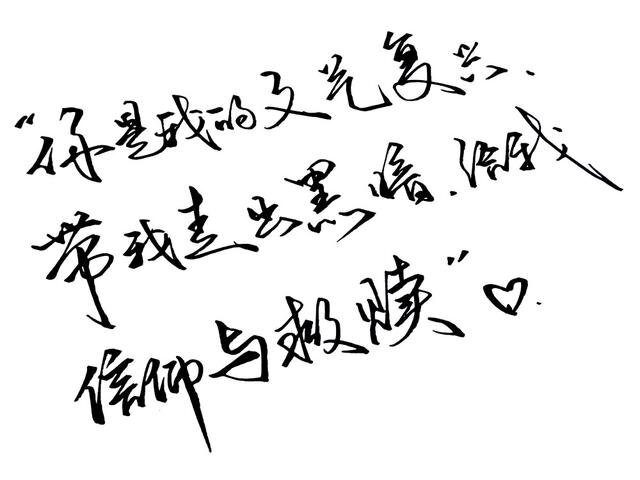 “你是我的文艺复兴.
带我走出黑暗.给我
信仰与救赎”♡.